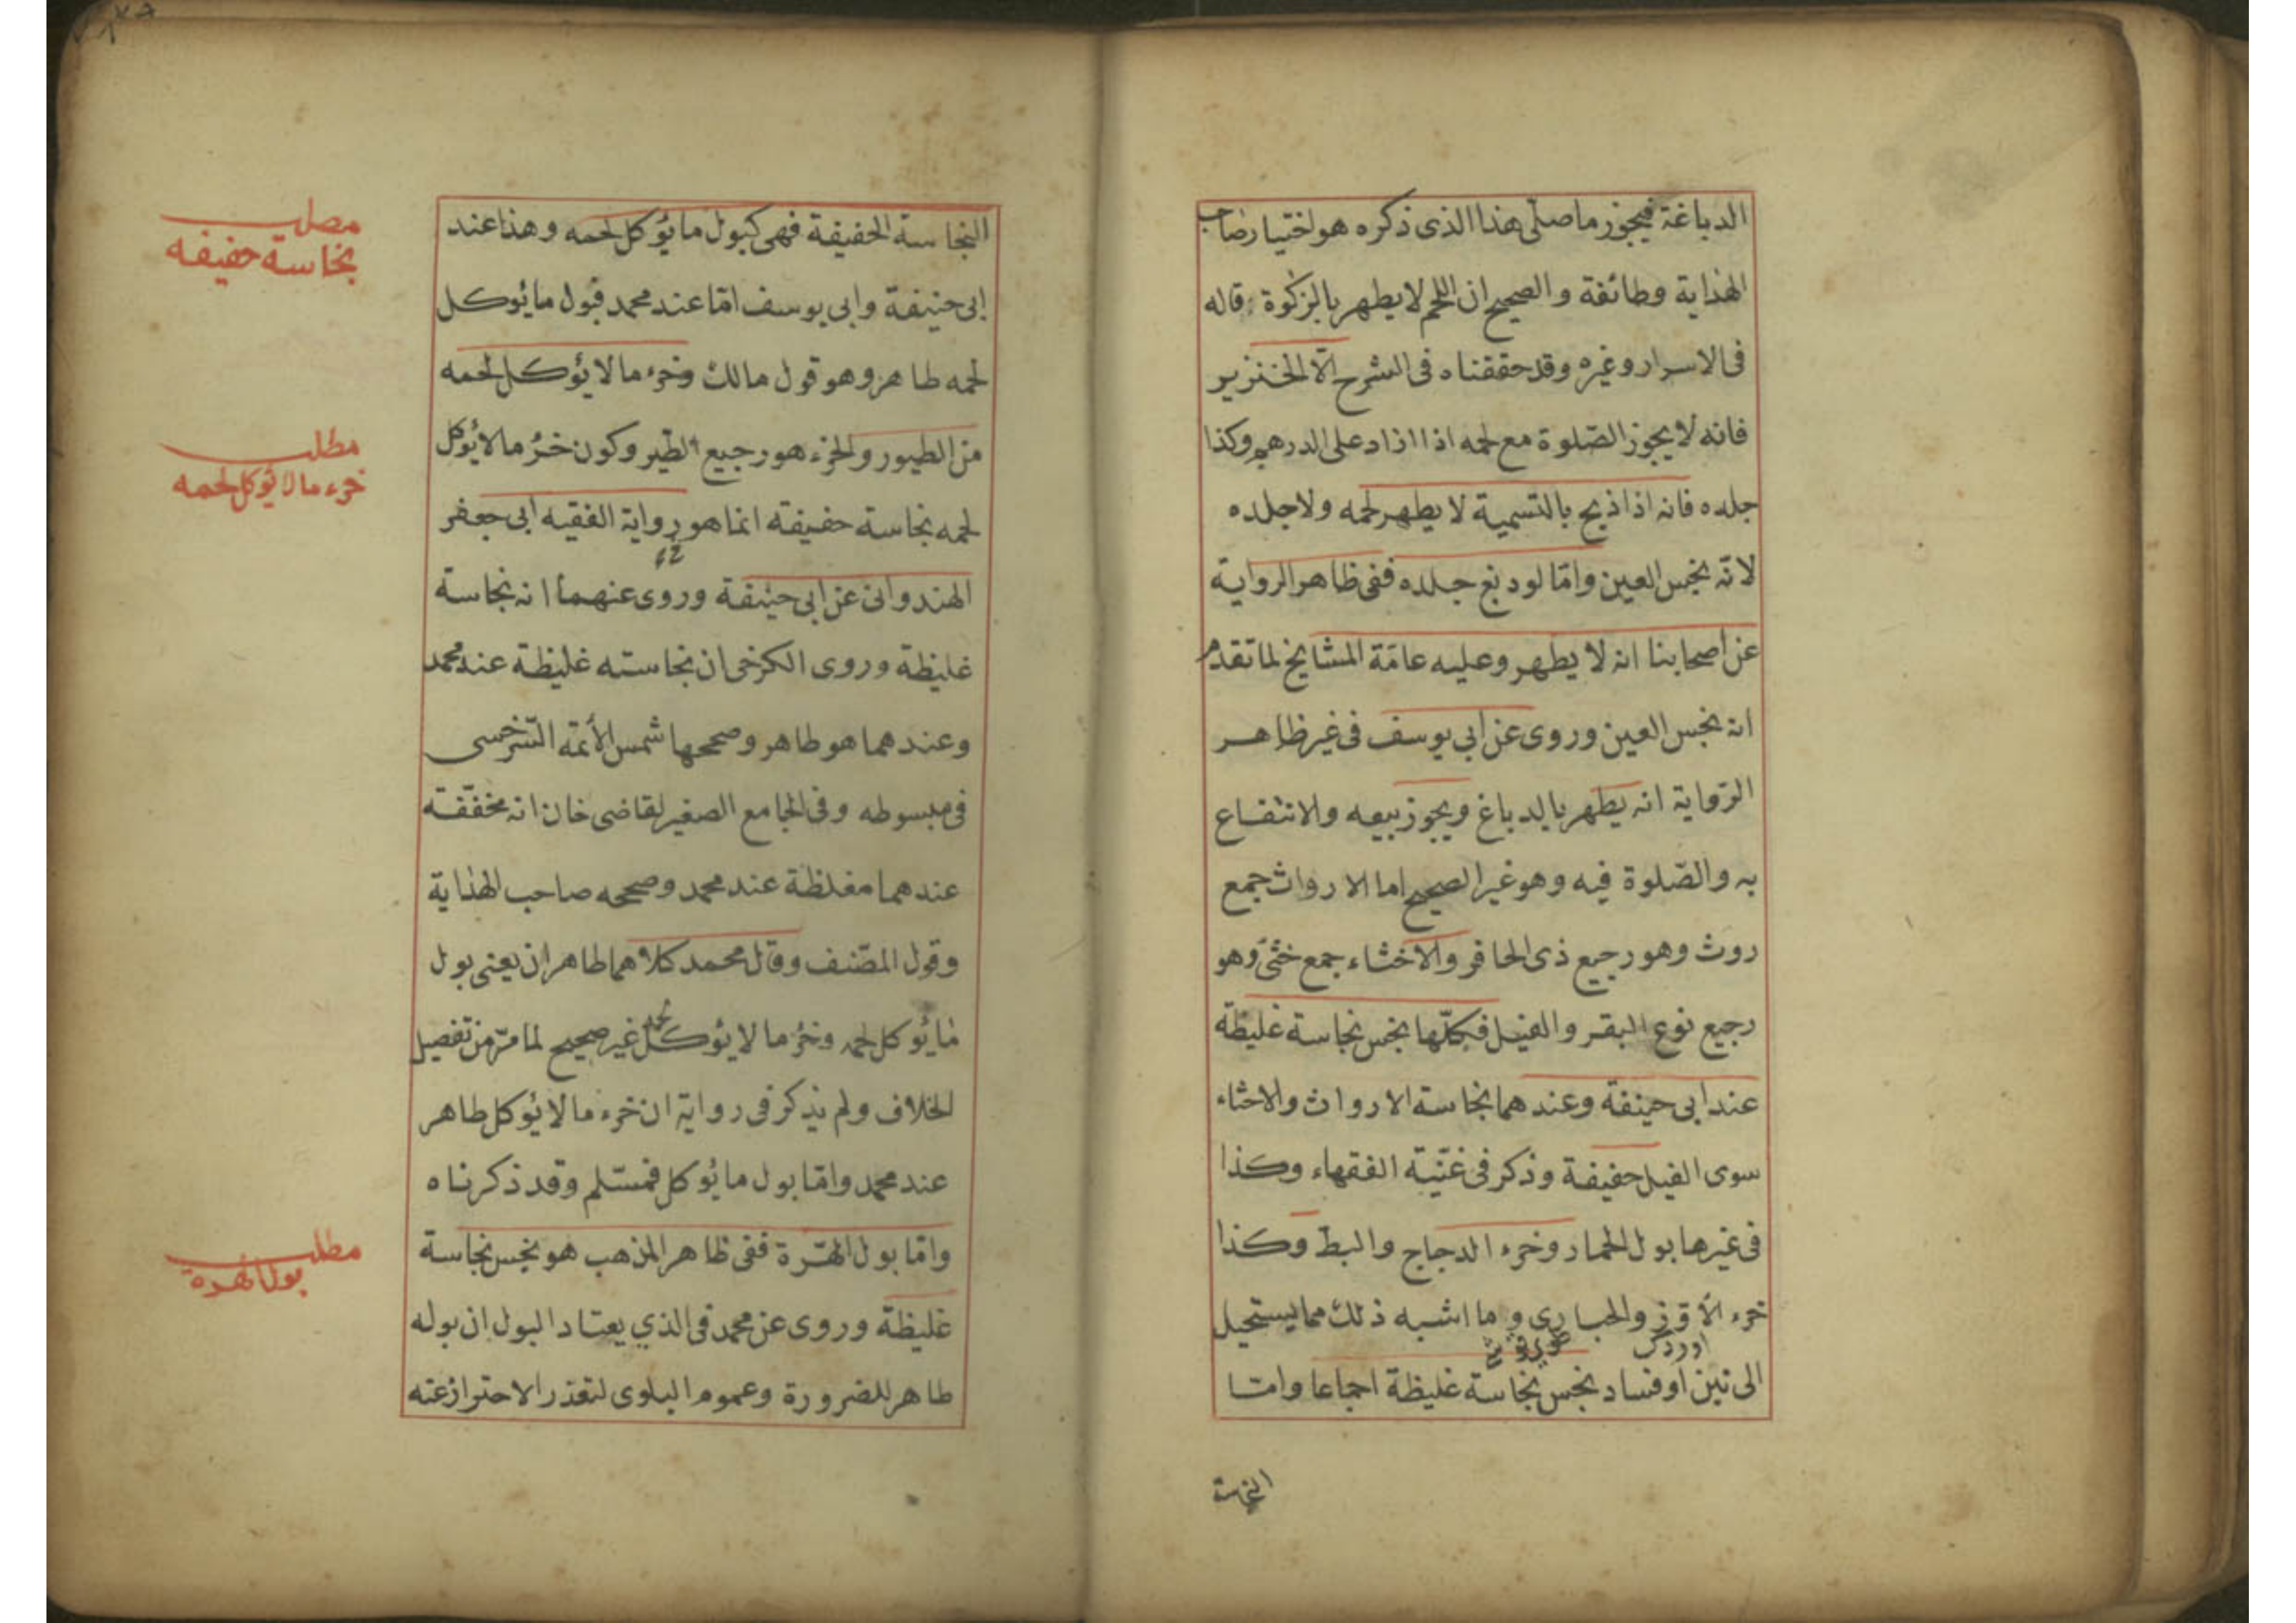 الدباغة فيجوز ما صلى هذا الذى ذكره هو اختيار صاحب
الهداية وطائفة والصحيح ان اللحم لا يطهر بالزكوة قاله
فى الاسرار وغيره وقد حققناه فى الشرح الّا الخنزير
فانه لا يجوز الصّلوة مع لحمه اذا ازاد على الدرهم وكذا
جلده فانه اذا ذبح بالتسمية لا يطهر لحمه ولا جلده
لانّه نجس العين وامّا لو دبغ جلده ففى ظاهر الرواية
عن اصحابنا انه لا يطهر وعليه عامّة المشايخ لما تقدم
انه نجس العين وروى عن ابي يوسف فى غير ظاهر
الرّواية انه يطهر بالدباغ ويجوز بيعه والانتفاع
به والصّلوة فيه وهو غير الصحيح اما الارواث جمع
روث وهو رجيع ذى الحافر والاخثاء جمع خثى وهو
رجيع نوع البقر والفيل فكلّها نجس نجاسة غليظة
عند ابى حنيفة وعندهما نجاسة الارواث والاخثاء
سوى الفيل خفيفة وذكر فى غنّية الفقهاء وكذا
فى غيرها بول الحمار وخرء الدجاج والبطّ وكذا
خرء الاوّز والحبارى وما اشبه ذلك مما يستحيل
اوردك
الى نتن او فساد نجس نجاسة غليظة اجماعا وامّا
النجاسة
النجاسة الخفيفة فهى كبول ما يؤكل لحمه وهذا عند
ابى حنيفة وابى يوسف امّا عند محمد فبول ما يؤكل
لحمه طاهر وهو قول مالك وخرء ما لا يؤكل لحمه
من الطيور والخرء هو رجيع الطّير وكون خرء ما لا يؤكل
لحمه نجاسة خفيفة انما هو رواية الفقيه ابى جعفر
الهندوانى عن ابى حنيفة وروى عنهما انه نجاسة
غليظة وروى الكرخى ان نجاسته غليظة عند محمد
وعندهما هو طاهر وصححها شمس الأئمه السّرخسى
فى مبسوطه وفى الجامع الصغير لقاضى خان انه مخفّفة
عندهما مغلظة عند محمد وصححه صاحب الهداية
وقول المصّنف وقال محمد كلاهما طاهران يعنى بول
ما يؤكل لحمه وخرء ما لا يؤكل لحمه غير صحيح لما مرّ من تفصيل
الخلاف ولم يذكر فى رواية ان خرء ما لا يؤكل طاهر
عند محمد وامّا بول ما يؤكل فمسّلم وقد ذكرناه
وامّا بول الهّرة ففى ظاهر المذهب هو نجس نجاسة
غليظة وروى عن محمد فى الذي يعتاد البول ان بوله
طاهر للضرورة وعموم البلوى لتعذر الاحتراز عنه
مطلب
نجاسة خفيفه
مطلب
خرء ما لا يؤكل لحمه
مطلب
بول الهره